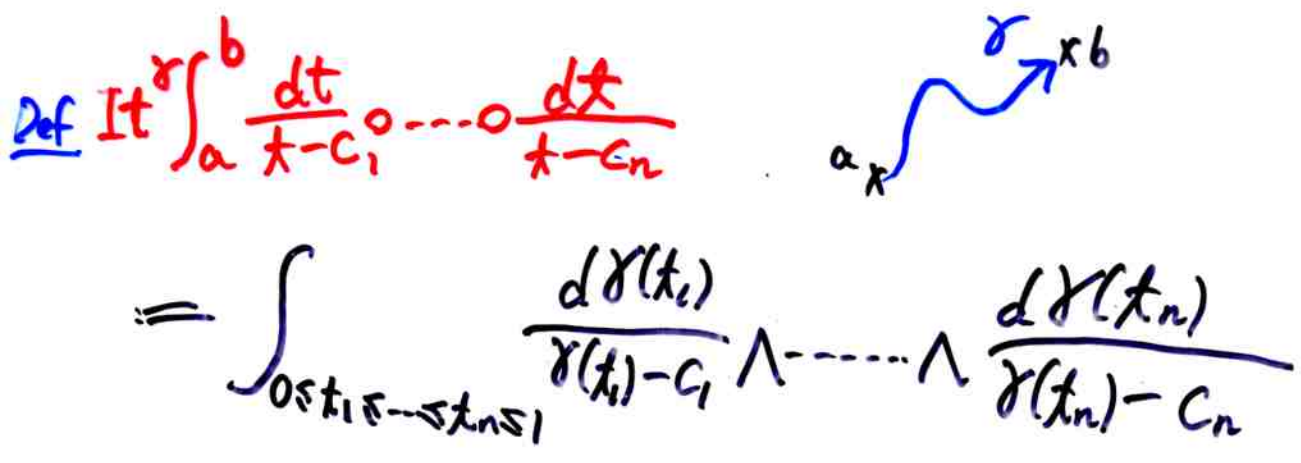 Def It^γ∫_a^b dt/(t-c_1) ∘ ---- ∘ dt/(t-c_n)
γ
a × × b
:= ∫_{0≤t_1≤---≤t_n≤1} dγ(t_1)/(γ(t_1)-c_1) ∧ ------ ∧ dγ(t_n)/(γ(t_n)-c_n)